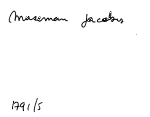 Moseman Jacobus
1791/5